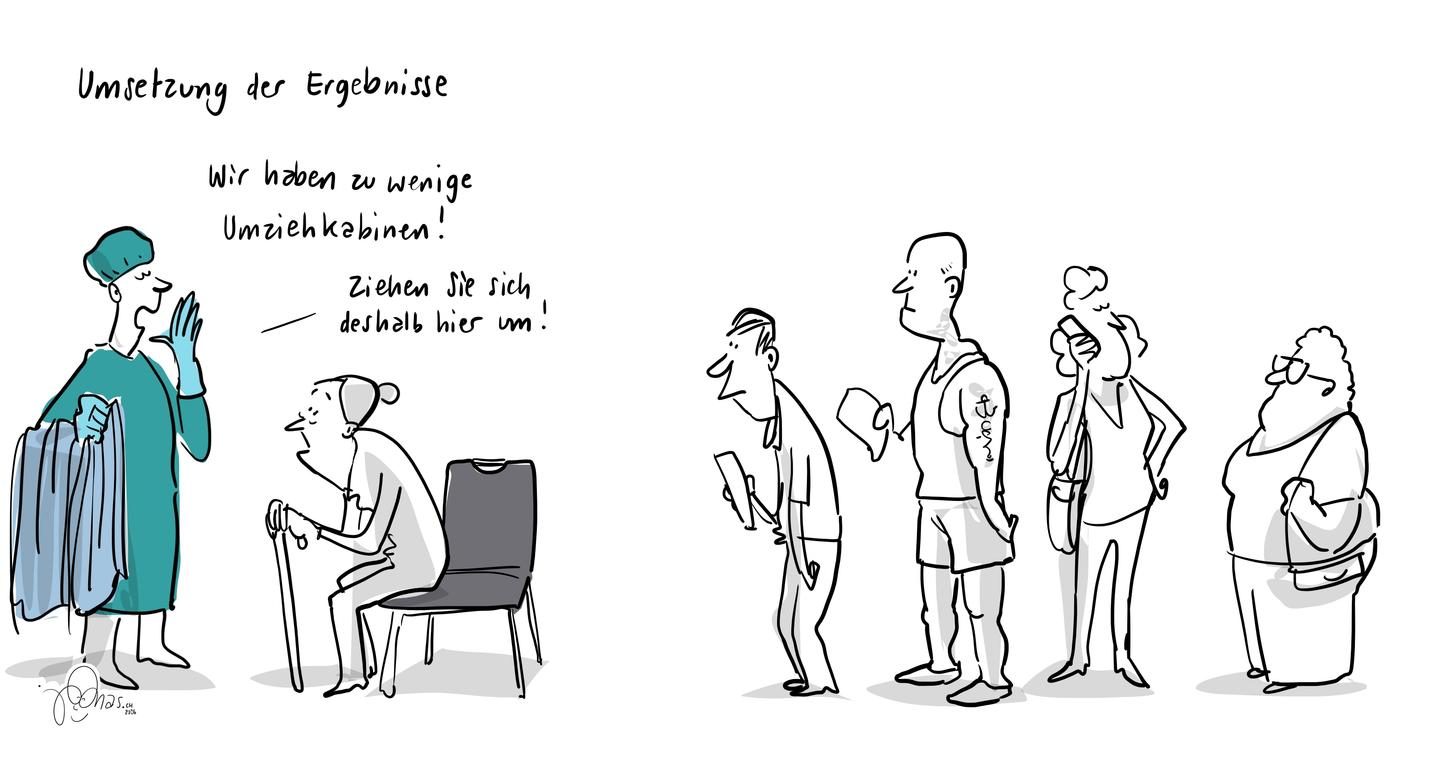 Umsetzung der Ergebnisse
Wir haben zu wenige
Umziehkabinen!
Ziehen Sie sich
deshalb hier um!